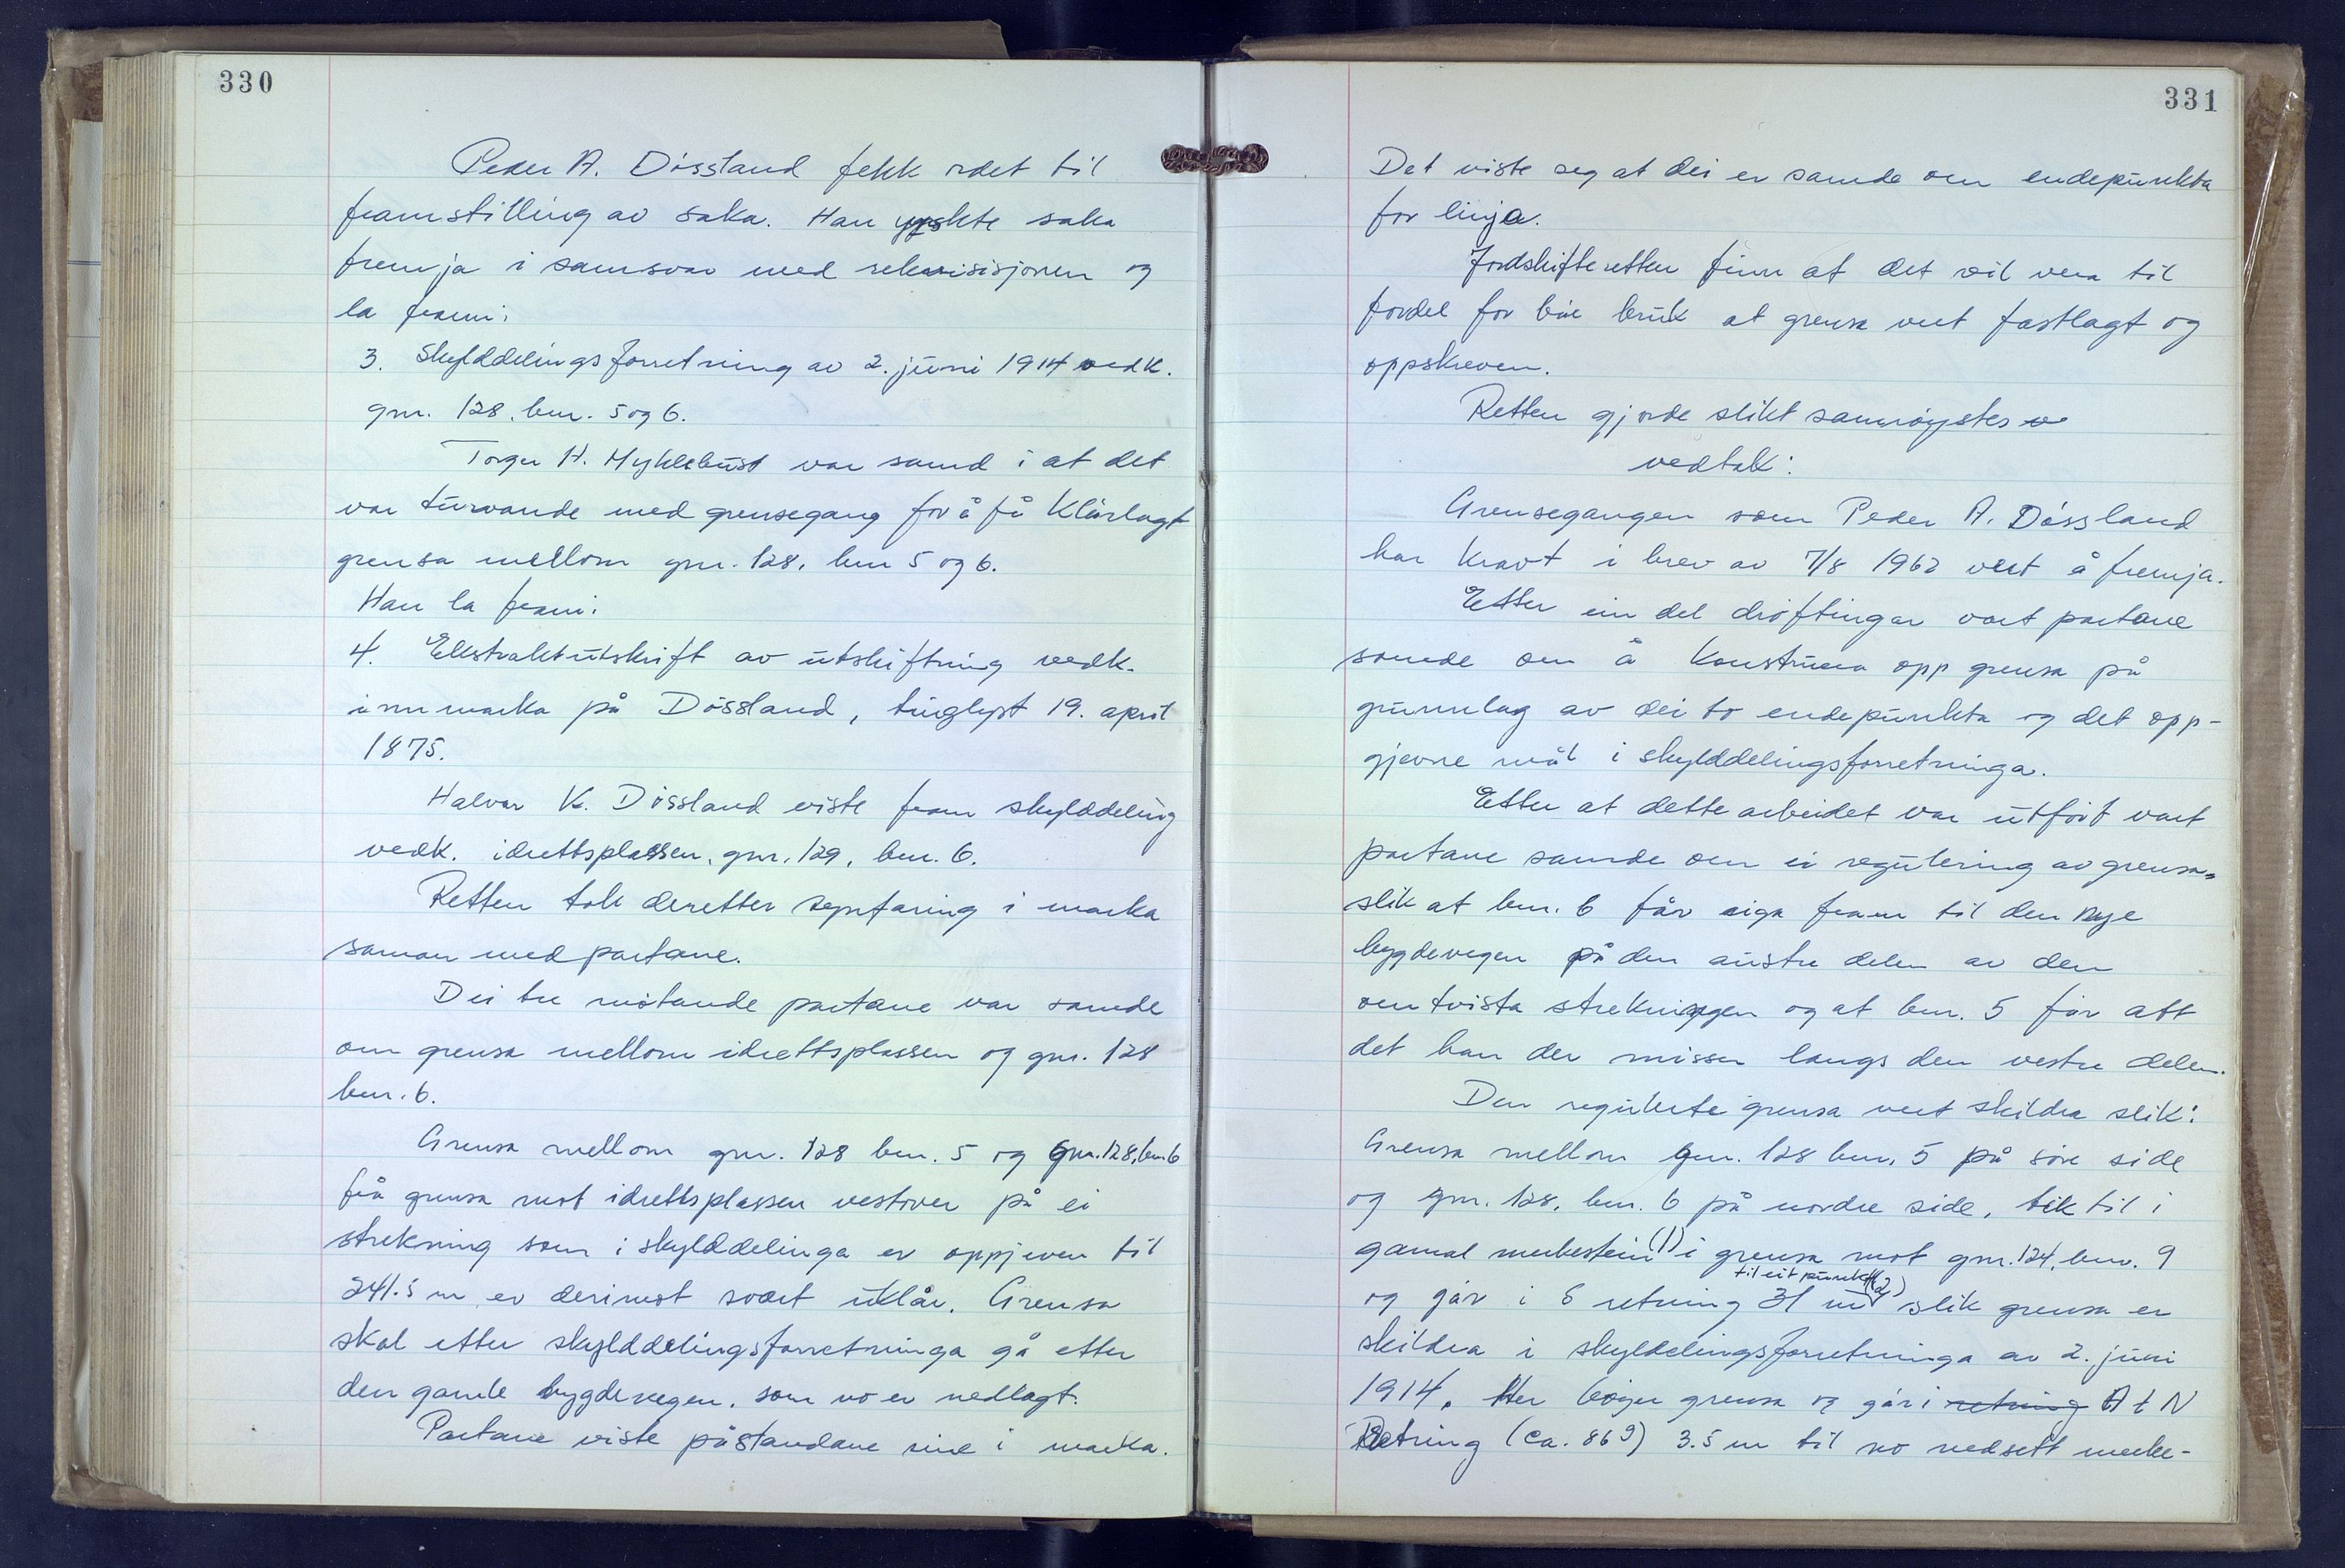 330
Peder A. Døssland fekk ordet til
framstilling av saka. Han ynskte saka
fremja i samsvar med rekvisisjonen og
la fram:
3. Skylddelingsforretning av 2. juni 1914 vedk.
gnr. 128, bnr. 5 og 6.
Torger H. Myklebust var samd i at det
var turvande med grensegang for å få klårlagt
grensa mellom gnr. 128, bnr 5 og 6.
Han la fram:
4. Ekstraktutskrift av utskiftning vedk.
innmarka på Døssland, tinglyst 19. april
1875.
Halvor K. Døssland viste fram skylddeling
vedk. idrettsplassen, gnr. 129, bnr. 6.
Retten tok deretter synfaring i marka
saman med partane.
Dei tre møtande partane var samde
om grensa mellom idrettsplassen og gnr. 128
bnr. 6.
Grensa mellom gnr. 128 bnr. 5 og gnr. 128, bnr. 6
frå grensa mot idrettsplassen vestover på ei
strekning som i skylddelinga er oppjeven til
241.5 m er derimot svært uklår. Grensa
skal etter skylddelingsforretninga gå etter
den gamle bygdevegen, som no er nedlagt.
Partane viste påstandane sine i marka.
331
Det viste seg at dei er samde om endepunkta
for linja.
Jordskifteretten finn at det vil vera til
fordel for båe bruk at grensa vert fastlagt og
oppskreven.
Retten gjorde slikt samrøystes
vedtak:
Grensegangen som Peder A. Døssland
har kravt i brev av 7/8 1962 vert å fremja.
Etter ein del drøftingar vart partane
samde om å konstruera opp grensa på
grunnlag av dei to endepunkta og det opp-
gjevne mål i skylddelingsforretninga.
Etter at dette arbeidet var utført vart
partane samde om ei regulering av grensa,
slik at bnr. 6 får eiga fram til den nye
bygdevegen på den austre delen av den
omtvista strekningen og at bnr. 5 får att
det han der misser langs den vestre delen.
Den regulerte grensa vert skildra slik:
Grensa mellom gnr. 128 bnr. 5 på søre side
og gnr. 128, bnr. 6 på nordre side, tek til i
gamal merkestein (1) i grensa mot gnr. 124, bnr. 9
til eit punkt (2)
og går i S retning 31 m slik grensa er
skildra i skyldelingsforretninga av 2. juni
1914. Her bøyer grensa og går i retning A t N
Retning (ca. 86 g) 3.5 m til no nedsett merke-